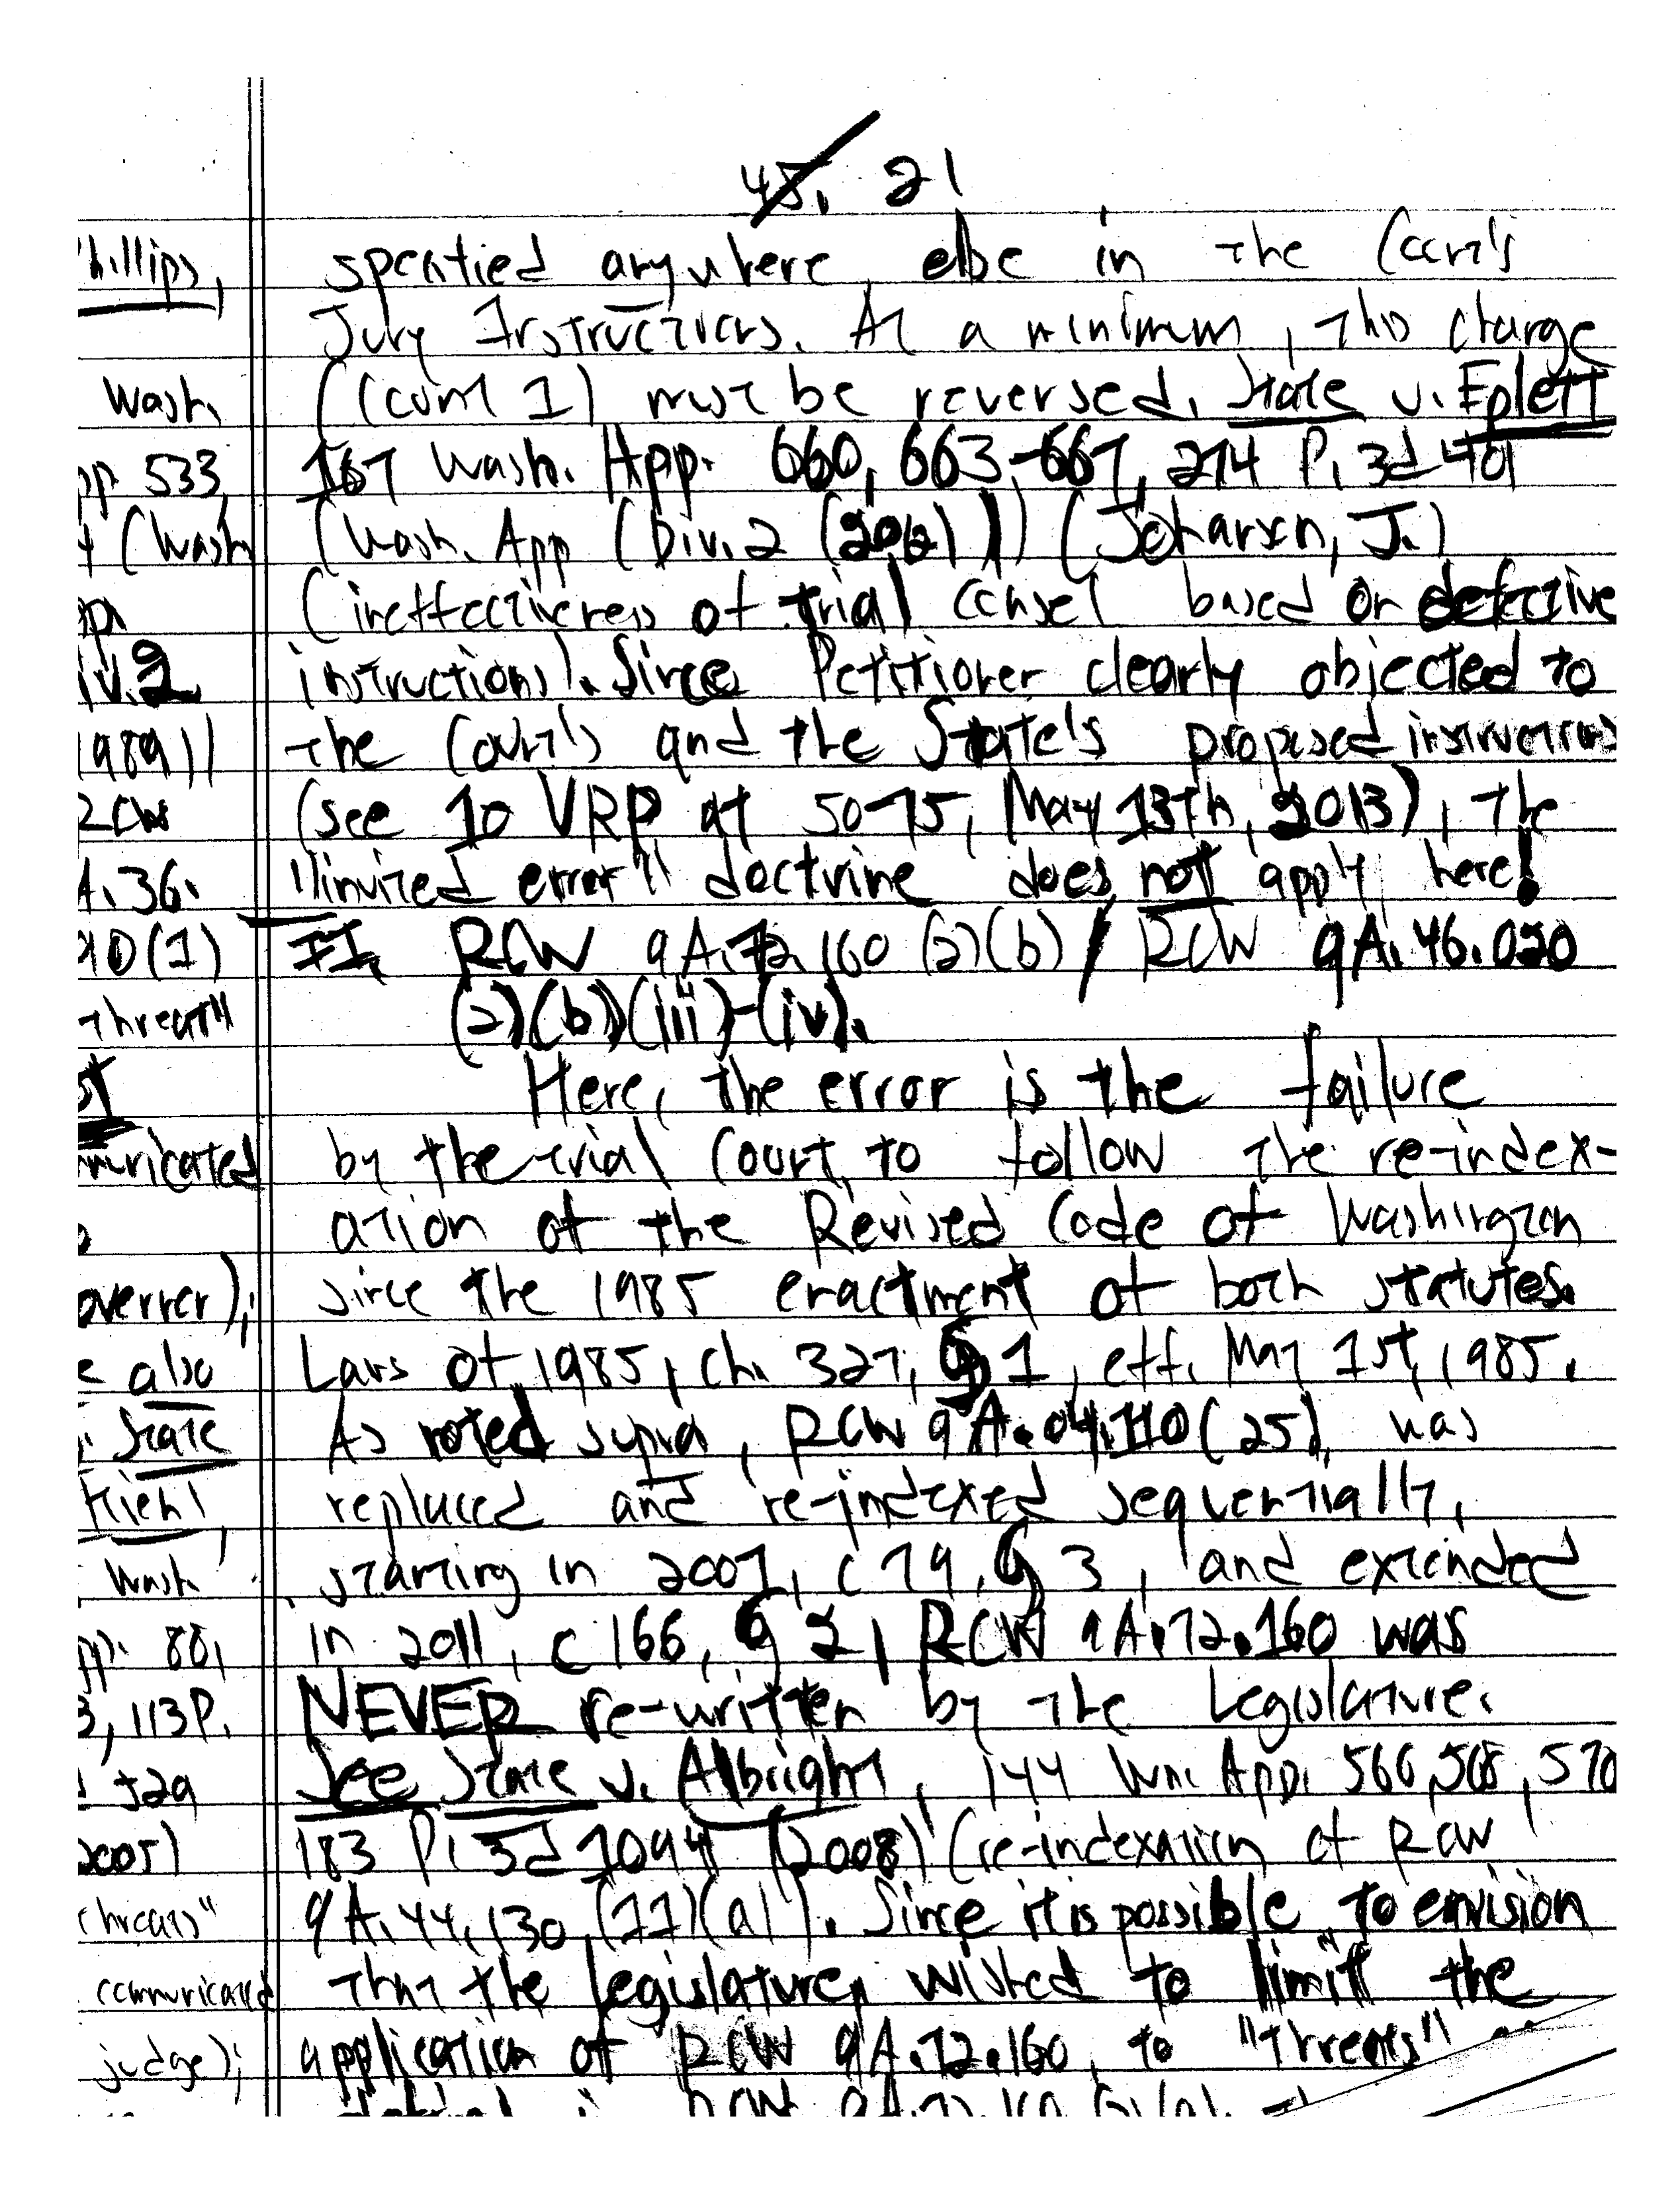 45. 21
specified anywhere else in the Court's
Jury Instructions. At a minimum, this charge
(Count 1) must be reversed. State v. Eplett
167 Wash. App. 660, 663-667, 274 P. 3d 401
(Wash. App (Div. 2 (2012))) (Johansen, J.)
(ineffectiveness of trial counsel based on defective
instructions). Since Petitioner clearly objected to
the Court's and the State's proposed instructions
(see 10 VRP at 50-75, May 13th, 2013), the
"invited error" doctrine does not apply here!
II. RCW 9A.72.160 (2)(b) / RCW 9A.46.020
(2)(b)(iii)-(iv).
Here, the error is the failure
by the trial Court, to follow the re-index-
ation of the Revised Code of Washington
since the 1985 enactment of both statutes.
Laws of 1985, ch. 327, § 1, eff. May 1st, 1985.
As noted supra, RCW 9A.04.110(25), was
replaced and re-indexed sequentially,
starting in 2007, c 79, § 3, and extended
in 2011, c 166, § 2, RCW 9A.72.160 was
NEVER re-written by the Legislature.
See State v. Albright, 144 Wn. App. 566, 568, 570
183 P. 3d 1094 (2008) (re-indexation of RCW
9A.44.130 (11)(a)). Since it is possible, to envision
that the legislature, wished to "limit" the
application of RCW 9A.72.160, to "threats"
hillips,
Wash.
pp 533,
(Wash
pp.
iv. 2
1989))
RCW
A.36.
90(1)
threat"
ot
mmunicated
overnor);
e also
State
Kiehl,
Wash.
pp. 88,
3, 113 P.
d 529
2005)
threats"
communicated
judge);